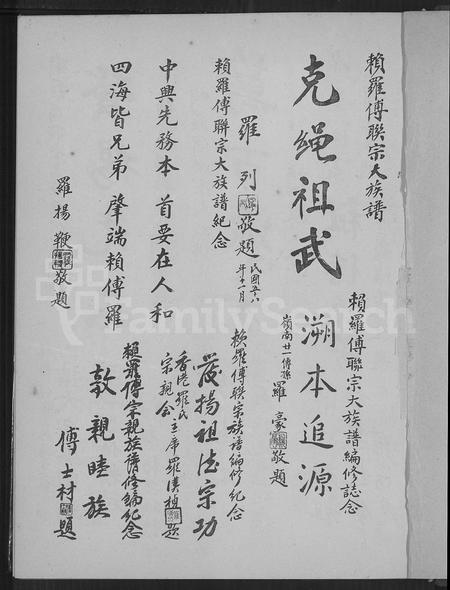 賴羅傅聯宗大族譜
克繩祖武
羅列敬題
民國五六
年十一月
賴羅傅聯宗大族譜紀念
中興先務本 首要在人和
四海皆兄弟 肇端賴傅羅
羅揚鞭敬題
賴羅傅聯宗大族譜編修誌念
溯本追源
嶺南廿一傳孫羅豪敬題
賴羅傅聯宗族譜編修紀念
發揚祖德宗功
香港羅氏
宗親會主席羅漢楨題
賴羅傅宗親族譜修編紀念
敦親睦族
傅士村題
FamilySearch